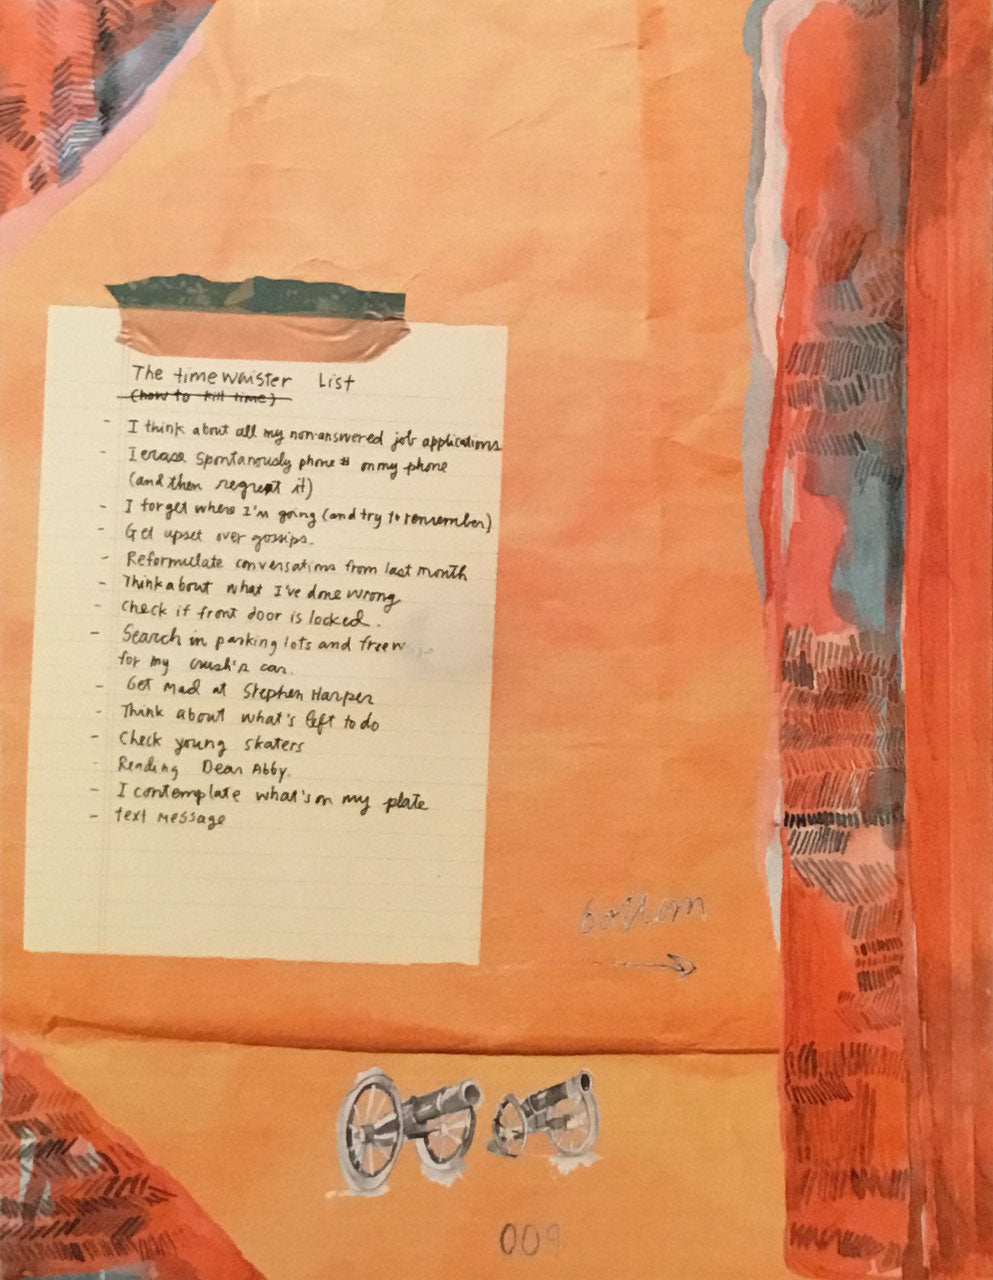 The timewaister List
(how to kill time)
- I think about all my non-answered job applications
- I erase spontanously phone # on my phone
(and then regret it)
- I forget where I'm going (and try to remember)
- Get upset over gossips.
- Reformulate conversations from last month
- Think about what I've done wrong
- Check if front door is locked.
- Search in parking lots and freeways
for my crush's car.
- Get mad at Stephen Harper
- Think about what's left to do
- Check young skaters
- Reading Dear Abby.
- I contemplate what's on my plate
- text message
bottom
009